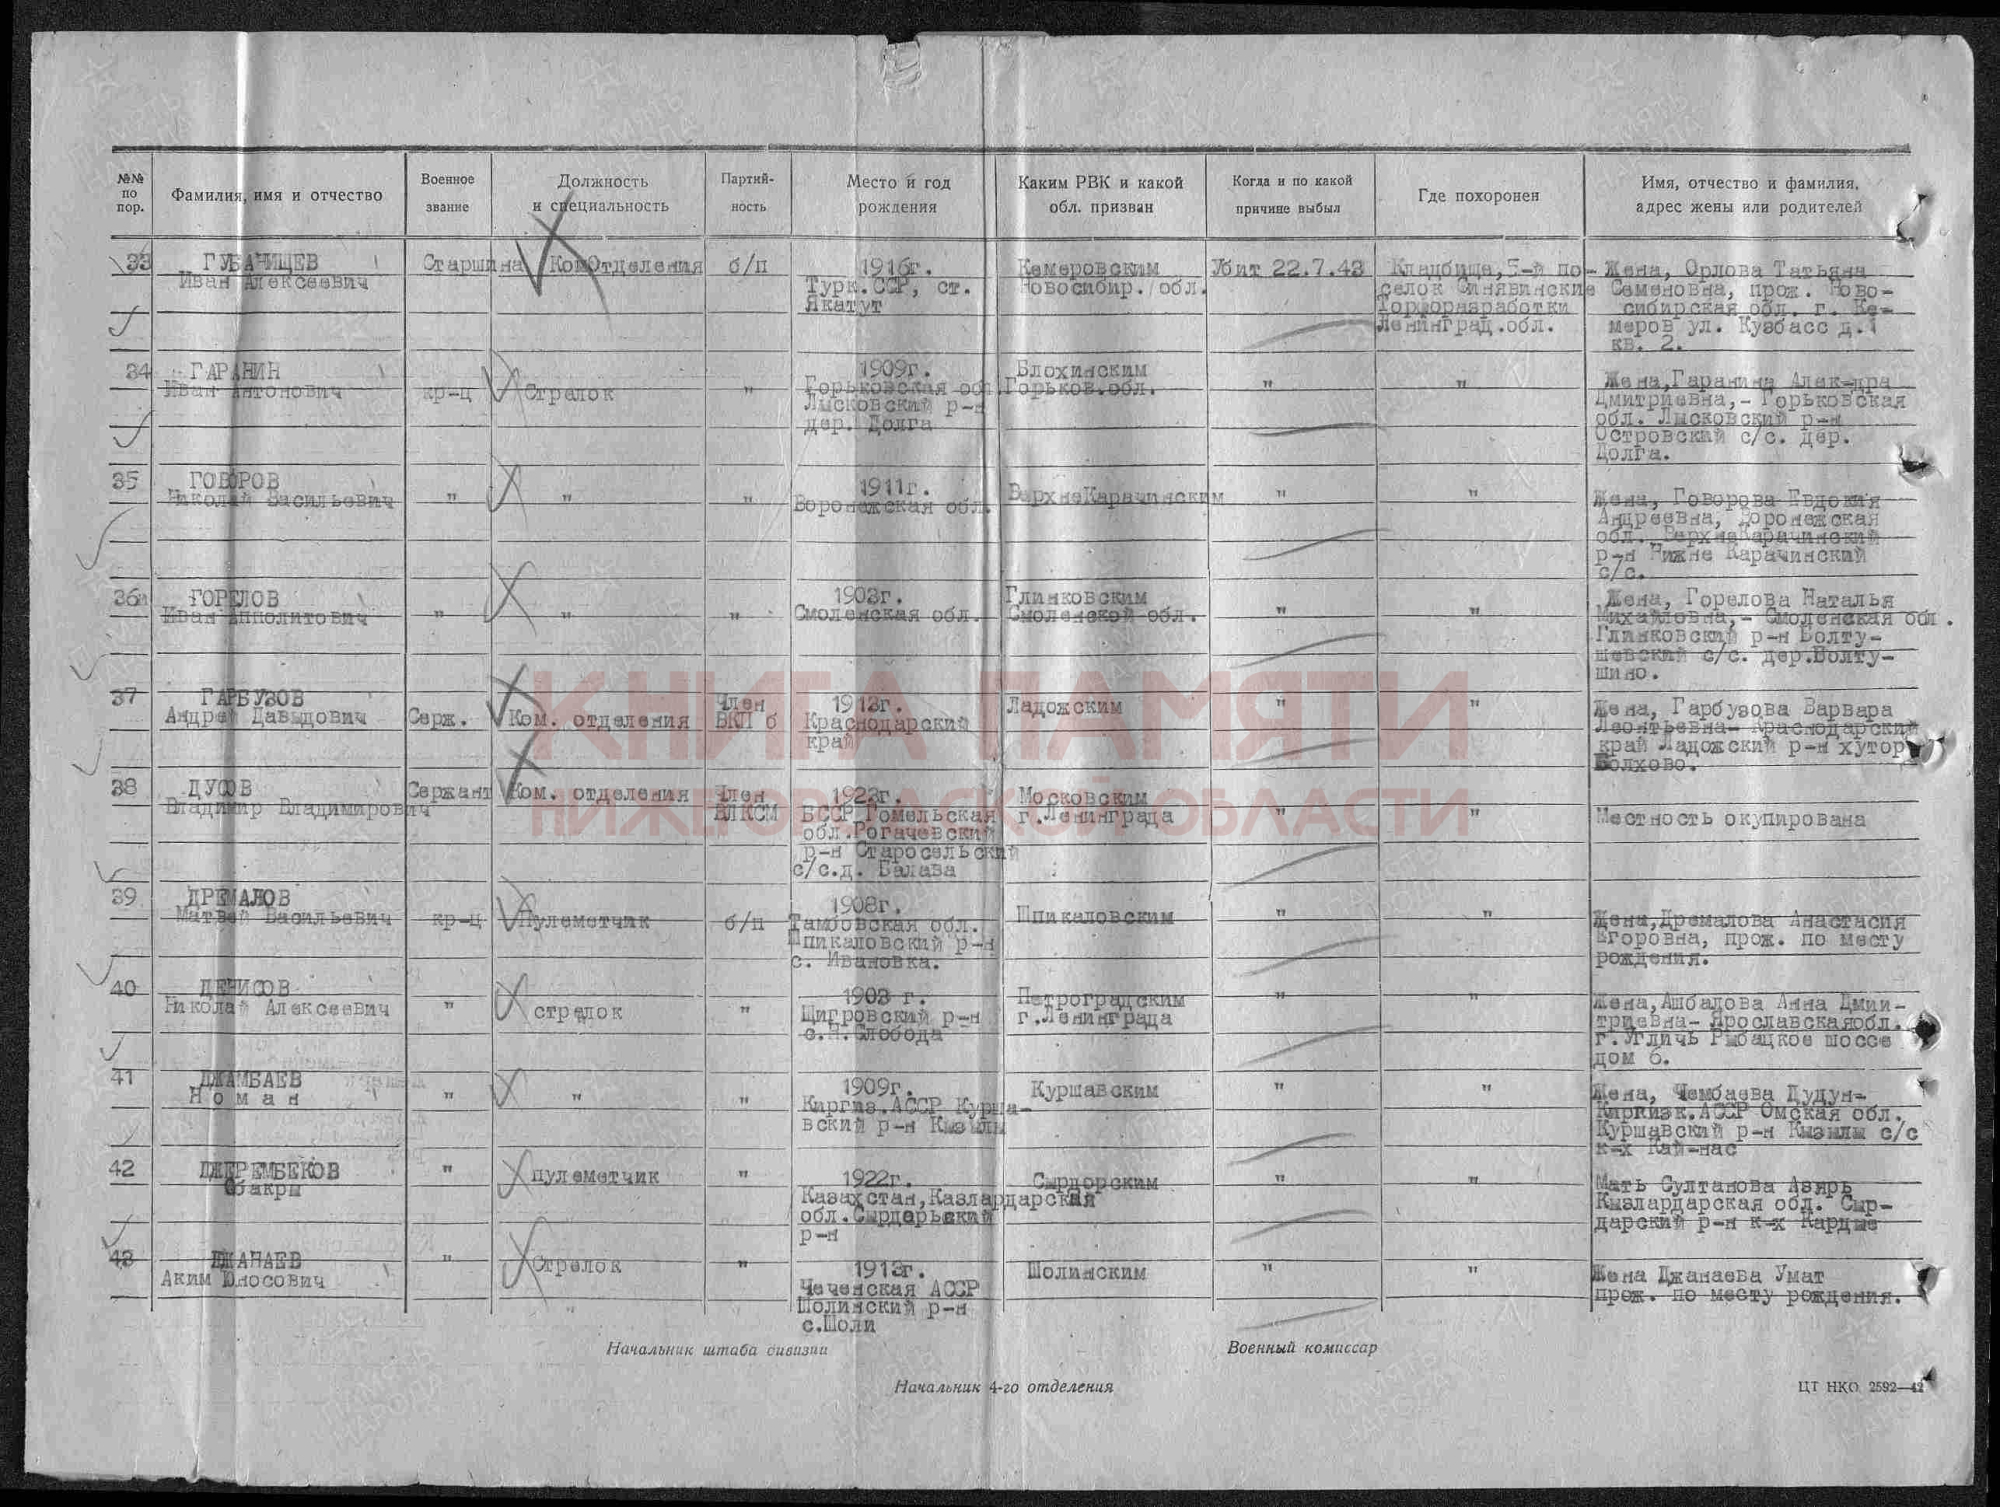 №№ по пор.
Фамилия, имя и отчество
Военное звание
Должность и специальность
Партийность
Место и год рождения
Каким РВК и какой обл. призван
Когда и по какой причине выбыл
Где похоронен
Имя, отчество и фамилия, адрес жены или родителей
33
ГУБАНИЩЕВ
Иван Алексеевич
Старшина
Ком Отделения
б/п
1916г.
Турк.ССР, ст.
Якатут
Кемеровским
Новосибир. обл.
Убит 22.7.43
Кладбище,5-й по-
селок Синявинские
Торфоразработки
Ленинград.обл.
Жена, Орлова Татьяна
Семеновна, прож. Ново-
сибирская обл. г. Ке-
меров ул. Кузбасс д.1
кв. 2.
34
ГАРАНИН
Иван Антонович
кр-ц
Стрелок
"
1909г.
Горьковская обл.
Лысковский р-н
дер. Долга
Блохинским
Горьков.обл.
"
"
Жена,Гаранина Алек-дра
Дмитриевна,- Горьковская
обл. Лысковский р-н
Островский с/с. дер.
Долга.
35
ГОВОРОВ
Николай Васильевич
"
"
"
1911г.
Воронежская обл.
ВерхнеКарачинским
"
"
Жена, Говорова Евдокия
Андреевна, Воронежская
обл. ВерхнеКарачинский
р-н Нижне Карачинский
с/с.
36
ГОРЕЛОВ
Иван Ипполитович
"
"
"
1903г.
Смоленская обл.
Глинковским
Смоленской обл.
"
"
Жена, Горелова Наталья
Михайловна,- Смоленская обл.
Глинковский р-н Болту-
шевский с/с. дер.Болту-
шино.
37
ГАРБУЗОВ
Андрей Давыдович
Серж.
Ком. отделения
Член
ВКП б
1913г.
Краснодарский
край
Ладожским
"
"
Жена, Гарбузова Варвара
Леонтьевна- Краснодарский
край Ладожский р-н хутор
Болхово.
38
ДУСОВ
Владимир Владимирович
Сержант
Ком. отделения
Член
ВЛКСМ
1923г.
БССР Гомельская
обл.Рогачевский
р-н Старосельский
с/с.д. Балава
Московским
г.Ленинграда
"
"
Местность окупирована
39
ДРЕМАЛОВ
Матвей Васильевич
кр-ц
Пулеметчик
б/п
1908г.
Тамбовская обл.
Шпикаловский р-н
с. Ивановка.
Шпикаловским
"
"
Жена,Дремалова Анастасия
Егоровна, прож. по месту
рождения.
40
ДЕНИСОВ
Николай Алексеевич
"
стрелок
"
1903 г.
Щигровский р-н
с.Н.Слобода
Петроградским
г.Ленинграда
"
"
Жена,Ашбалова Анна Дмии-
триевна- Ярославскаяобл.
г.Углич Рыбацкое шоссе
дом 6.
41
ДЖАМБАЕВ
Номан
"
"
"
1909г.
Киргиз.АССР Курша-
вский р-н Кызылы
Куршавским
"
"
Жена, Чембаева Дудун-
Киргизк.АССР Омская обл.
Куршавский р-н Кызылы с/с
к-х Кай-нас
42
ДЖЕРЕМБЕКОВ
Обакры
"
пулеметчик
"
1922г.
Казахстан,Казлардарская
обл.Сырдарьский
р-н
Сырдорским
"
"
Мать Султанова Азярь
Кызлардарская обл. Сыр-
дарский р-н к-х Кардые
43
ДЖАНАЕВ
Аким Юносович
"
Стрелок
"
1913г.
Чеченская АССР
Шолинский р-н
с.Шоли
Шолинским
"
"
Жена Джанаева Умат
прож. по месту рождения.
КНИГА ПАМЯТИ
НИЖЕГОРОДСКОЙ ОБЛАСТИ
Начальник штаба дивизии
Военный комиссар
Начальник 4-го отделения
ЦТ НКО 2592—42